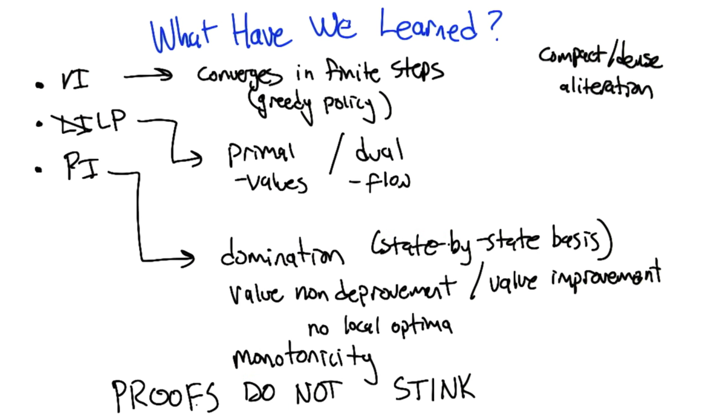 What Have We Learned?
compact/dense
aliteration
• VI → converges in finite steps
(greedy policy)
• LI LP → primal / dual
-values -flow
• PI → domination (state-by-state basis)
value nondeprovement / value improvement
no local optima
monotonicity
PROOFS DO NOT STINK